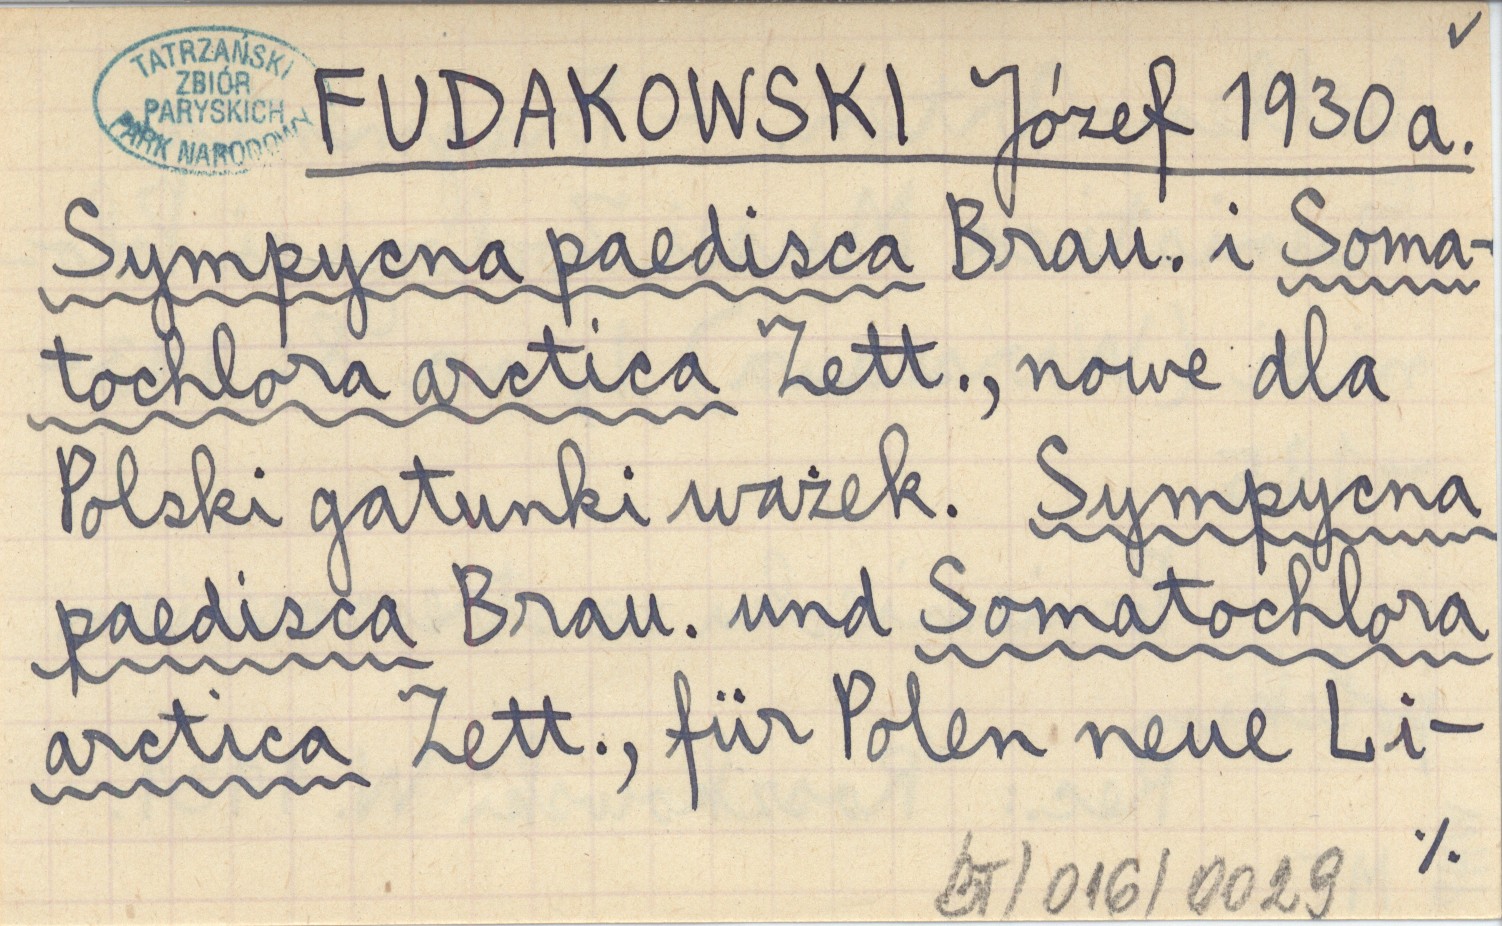 ✓
TATRZAŃSKI
ZBIÓR
PARYSKICH
PARK NARODOWY
FUDAKOWSKI Józef 1930a.
Sympycna paedisca Brau. i Soma-
tochlora arctica Zett., nowe dla
Polski gatunki ważek. Sympycna
paedisca Brau. und Somatochlora
arctica Zett., für Polen neue Li-
./.
BT/016/0029